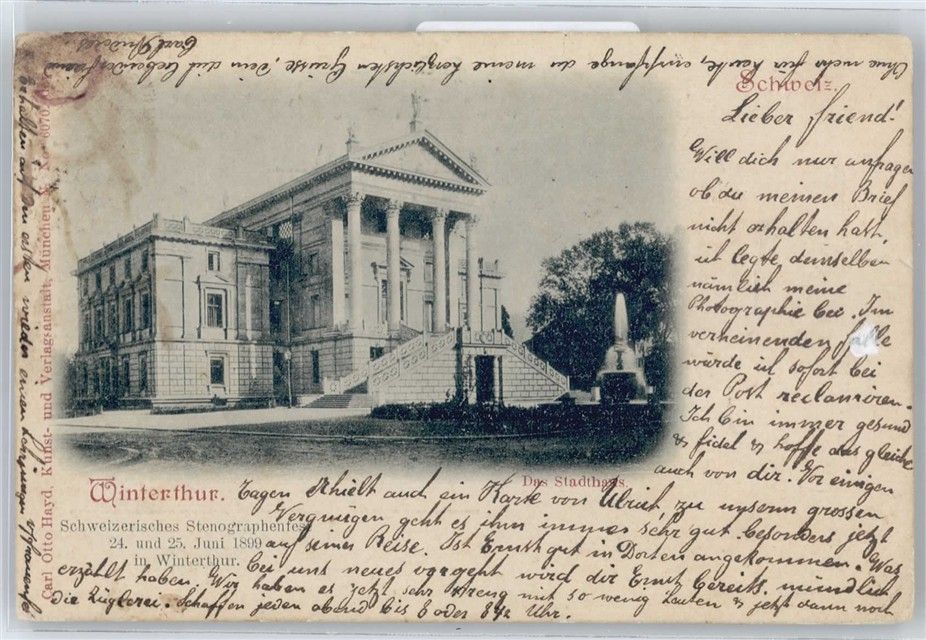 Schweiz.
Lieber Freund!
Will dich nur anfragen
ob du meinen Brief
nicht erhalten hast,
ich legte demselben
nämlich meine
Photographie bei. Im
verneinenden Falle
würde ich sofort bei
der Post reclamieren.
Ich bin immer gesund
& fidel & hoffe das gleiche
auch von dir. Vor einigen
Das Stadthaus.
Winterthur.
Tagen erhielt auch ein Karte von Ulrich zu unserm grossen
Vergnügen geht es ihm immer sehr gut besonders jetzt
Schweizerisches Stenographenfest
24. und 25. Juni 1899
in Winterthur.
auf seiner Reise. Ist Ernst gut in Dorten angekommen. Was
bei uns neues vorgeht wird dir Ernst bereits mündlich
erzählt haben. Wir haben es jetzt sehr streng mit so wenig Leuten & jetzt dann noch
die Züglerei. Schaffen jeden abend bis 8 oder 8½ Uhr.
Carl Otto Hayd, Kunst- und Verlagsanstalt, München No. 6070
Ohne mehr für heute, empfange du meine herzlichsten Grüsse, dein dich liebender Freund
Carl